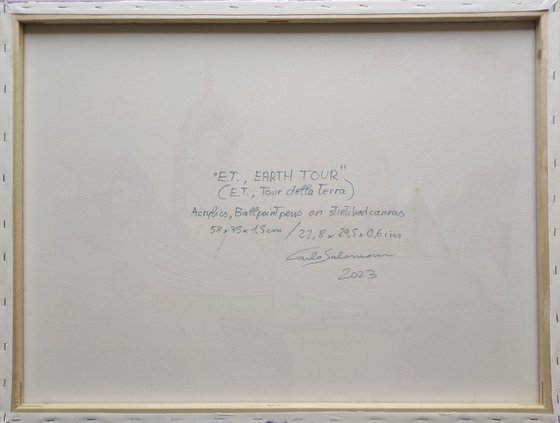 "E.T., EARTH TOUR"
(E.T., Tour della Terra)
Acrylics, Ballpoint pens on stretched canvas
58x75x1,5 cm / 22,8x29,5x0,6 in
Carlo Salomoni
2023